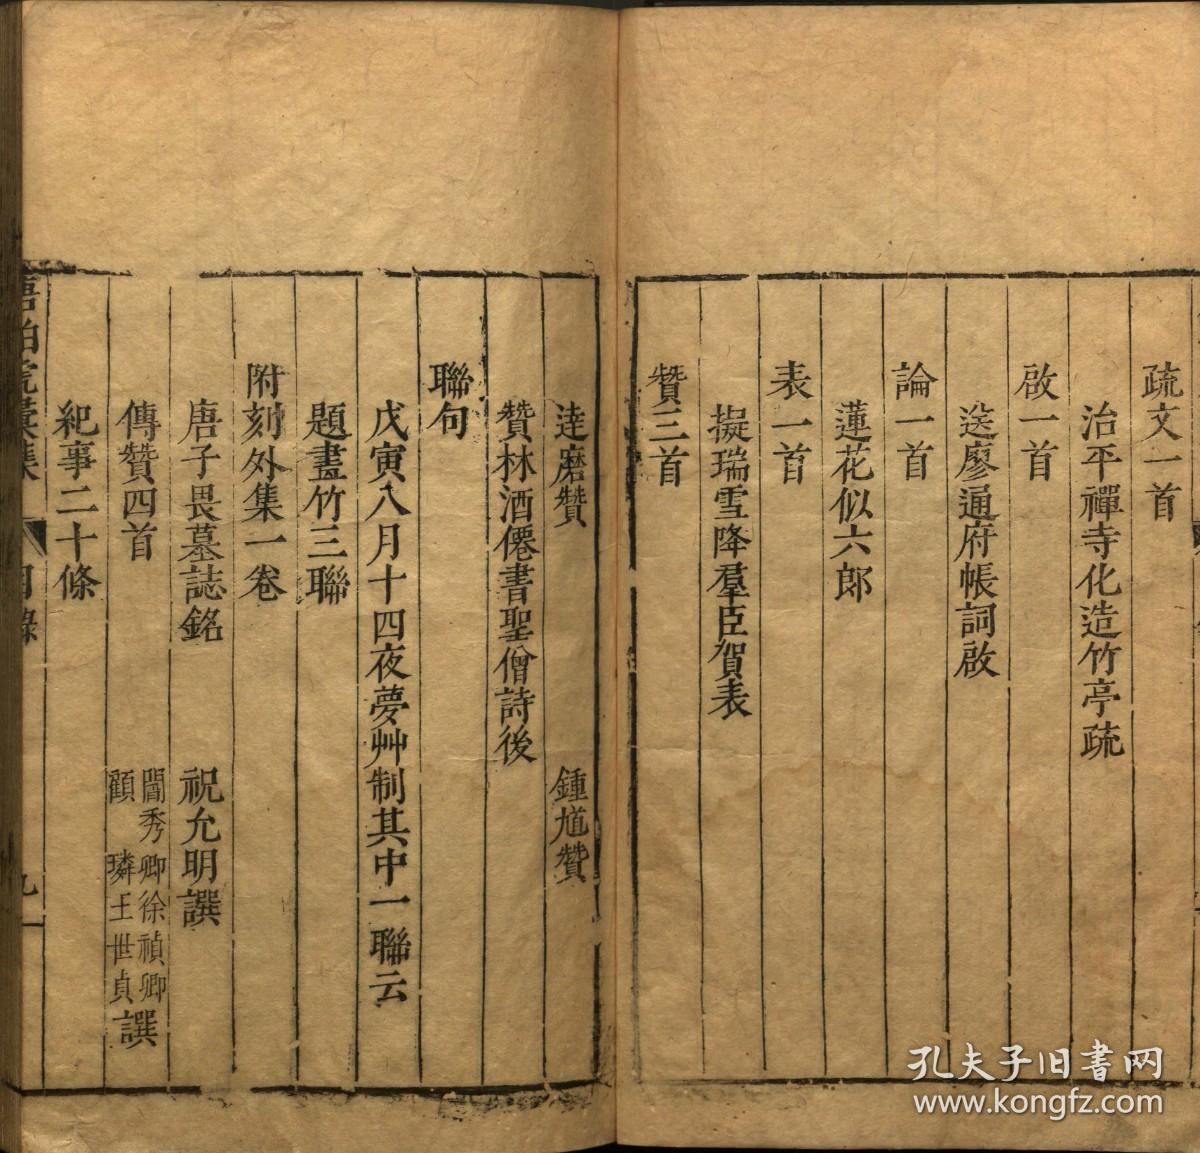 疏文一首
治平禪寺化造竹亭疏
啟一首
送廖通府帳詞啟
論一首
蓮花似六郎
表一首
擬瑞雪降羣臣賀表
贊三首
達磨贊 鍾馗贊
贊林酒僊書聖僧詩後
聯句
戊寅八月十四夜夢艸制其中一聯云
題畫竹三聯
附刻外集一卷
唐子畏墓誌銘 祝允明譔
傳贊四首 閻秀卿徐禎卿
顧璘王世貞譔
紀事二十條
唐伯虎彙集 目錄 九
孔夫子旧书网
www.kongfz.com